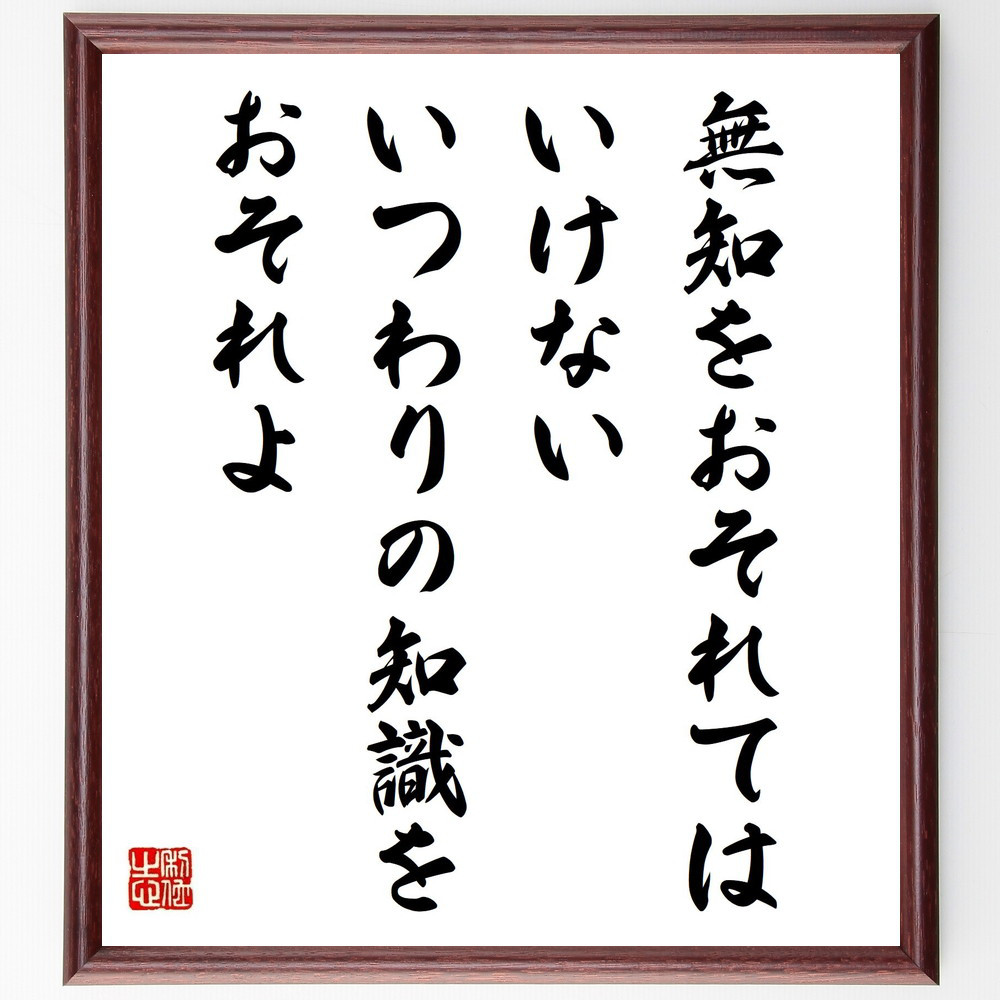 無知をおそれては
いけない
いつわりの知識を
おそれよ